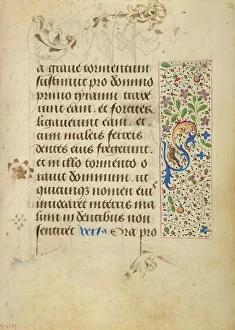 a graue tormentum
sustinuit pro domino
primo tyranni traxe
runt eam. et forates
ligauerunt eam. et
cum malleis ferreis
dentes eius fregerunt.
et in illo tormento o
rauit dominum. ut
quicunque nomen eius
inuocaret in terris ma
lum in dentibus non
sentiret Versus Ora pro